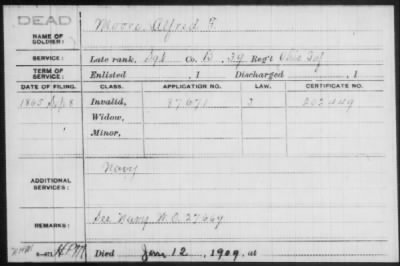 DEAD
NAME OF SOLDIER: Moore, Alfred
SERVICE: Late rank, Sgt Co. B, 39 Reg't Ohio Inf
TERM OF SERVICE: Enlisted , 1 Discharged , 1
DATE OF FILING. CLASS. APPLICATION NO. LAW. CERTIFICATE NO.
1865 Invalid, 87671 202449
Widow,
Minor,
ADDITIONAL SERVICES: Navy
REMARKS: See Navy W.O. 27669
Died Jan 12, 1909, at